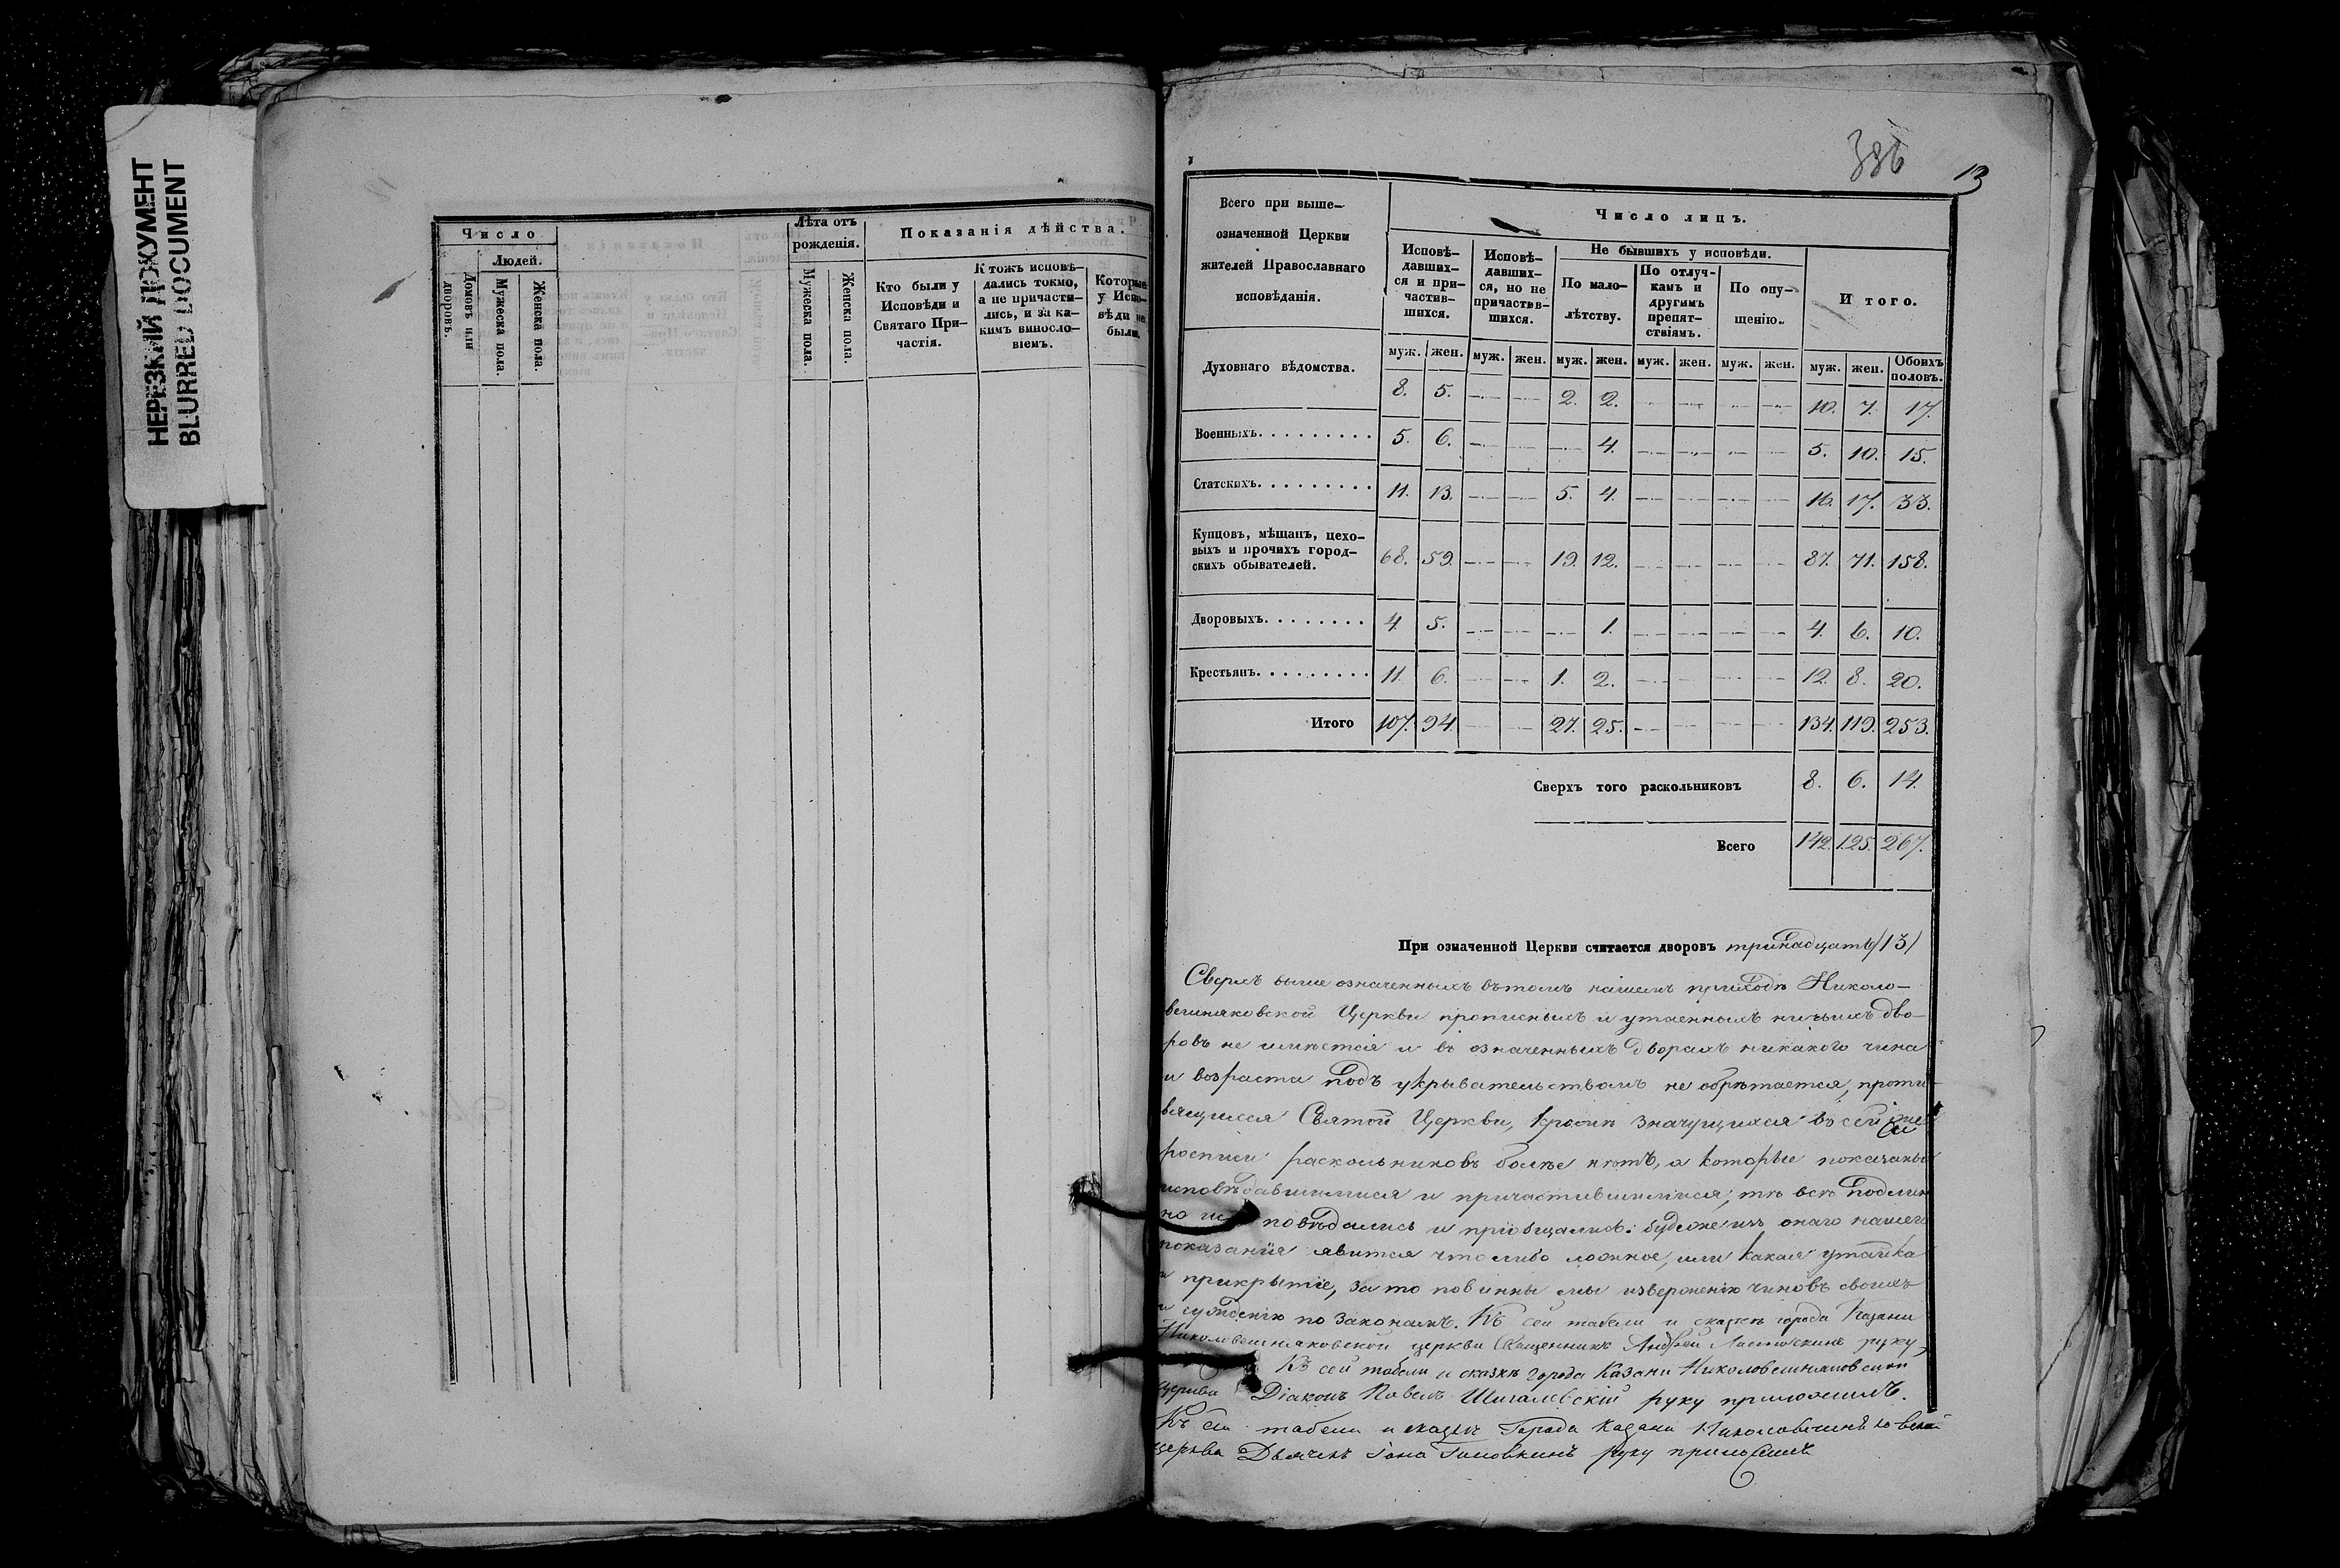 НЕРЕЗКИЙ ДОКУМЕНТ
BLURRED DOCUMENT
Число
Людей.
Домовъ или дворовъ.
Мужеска пола.
Женска пола.
Лѣта отъ рожденія.
Мужеска пола.
Женска пола.
Показанія дѣйства.
Кто были у Исповѣди и Святаго Причастія.
Ктожъ исповѣдались токмо, а не причастились, и за какимъ винословіемъ.
Которые у Исповѣди не были.
386
13
Всего при выше-
означенной Церкви
жителей Православнаго
исповѣданія.
Число лицъ.
Исповѣ-
давших-
ся и при-
частив-
шихся.
Исповѣ-
давших-
ся, но не
причастив-
шихся.
Не бывшихъ у исповѣди.
По мало-
лѣтству.
По отлуч-
камъ и
другимъ
препят-
ствіямъ.
По опу-
щенію.
И того.
муж. жен. муж. жен. муж. жен. муж. жен. муж. жен. муж. жен. Обоихъ половъ.
Духовнаго вѣдомства. 8. 5. — — 2. 2. — — — — 10. 7. 17.
Военныхъ......... 5. 6. — — — 4. — — — — 5. 10. 15.
Статскихъ......... 11. 13. — — 5. 4. — — — — 16. 17. 33.
Купцовъ, мѣщанъ, цехо-
выхъ и прочихъ город-
скихъ обывателей. 68. 59. — — 19. 12. — — — — 87. 71. 158.
Дворовыхъ........ 4. 5. — — — 1. — — — — 4. 6. 10.
Крестьянъ......... 11. 6. — — 1. 2. — — — — 12. 8. 20.
Итого 107. 94. — — 27. 25. — — — — 134. 119. 253.
Сверхъ того раскольниковъ 8. 6. 14.
Всего 142. 125. 267.
При означенной Церкви считается дворовъ тринадцать /13/
Сверхъ выше означенныхъ въ томъ нашемъ приходѣ Николо-
вешняковской Церкви прописныхъ и утаенныхъ ничьихъ дво-
ровъ не имѣется и въ означенныхъ дворахъ никакого чина
и возраста подъ укрывательствомъ не обрѣтается, проти-
вящихся Святой Церкви, кромѣ значущихся въ сей же
росписи раскольниковъ болѣе нѣтъ, а которые показаны
исповѣдавшимися и причастившимися, тѣ всѣ подлин
но исповѣдались и пріобщались: буде же изъ онаго нашего
показанія явится что либо ложное, или какая утайка
и прикрытіе, за то повинны мы изверженію чиновъ своихъ
и сужденію по законамъ. Къ сей табели и сказкѣ города Казани
Николовешняковской церкви Священникъ Андрей руку
Къ сей табели и сказкѣ города Казани Николовешняковской
Церкви Діаконъ Павелъ руку приложилъ.
Къ сей табели и сказкѣ Города Казани Николовешняковской
церкви Дьячекъ Іона Головкинъ руку приложилъ